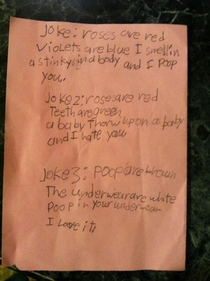 Joke: roses are red
Violets are blue I smell in
a stinky in a body and I Poop
you.
Joke2: roses are red
Teeth are green
a baby Thorw up on a baby
and I hate you
Joke3: Poop are brown
The underwear are white
Poop in your underwear
I love it